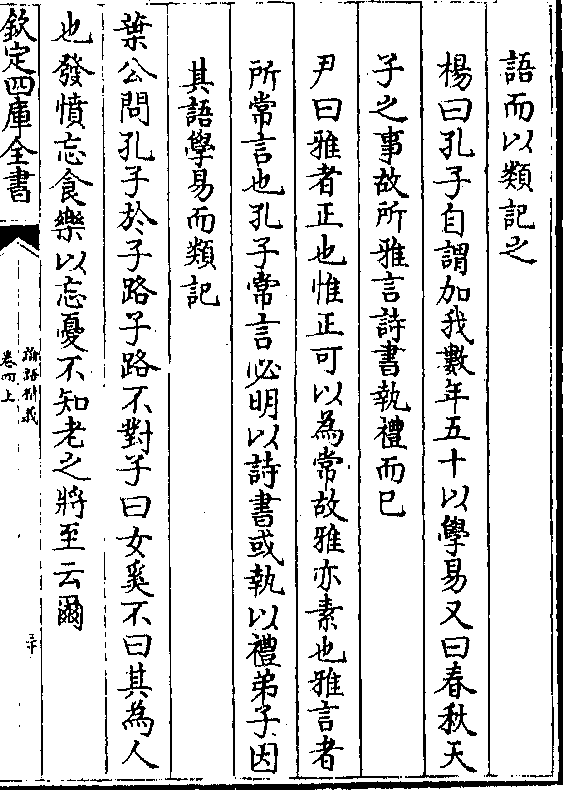 語而以類記之
楊曰孔子自謂加我數年五十以學易又曰春秋天
子之事故所雅言詩書執禮而已
尹曰雅者正也惟正可以為常故雅亦素也雅言者
所常言也孔子常言必明以詩書或執以禮弟子因
其語學易而類記
葉公問孔子於子路子路不對子曰女奚不曰其為人
也發憤忘食樂以忘憂不知老之將至云爾
欽定四庫全書
論語精義
卷四上